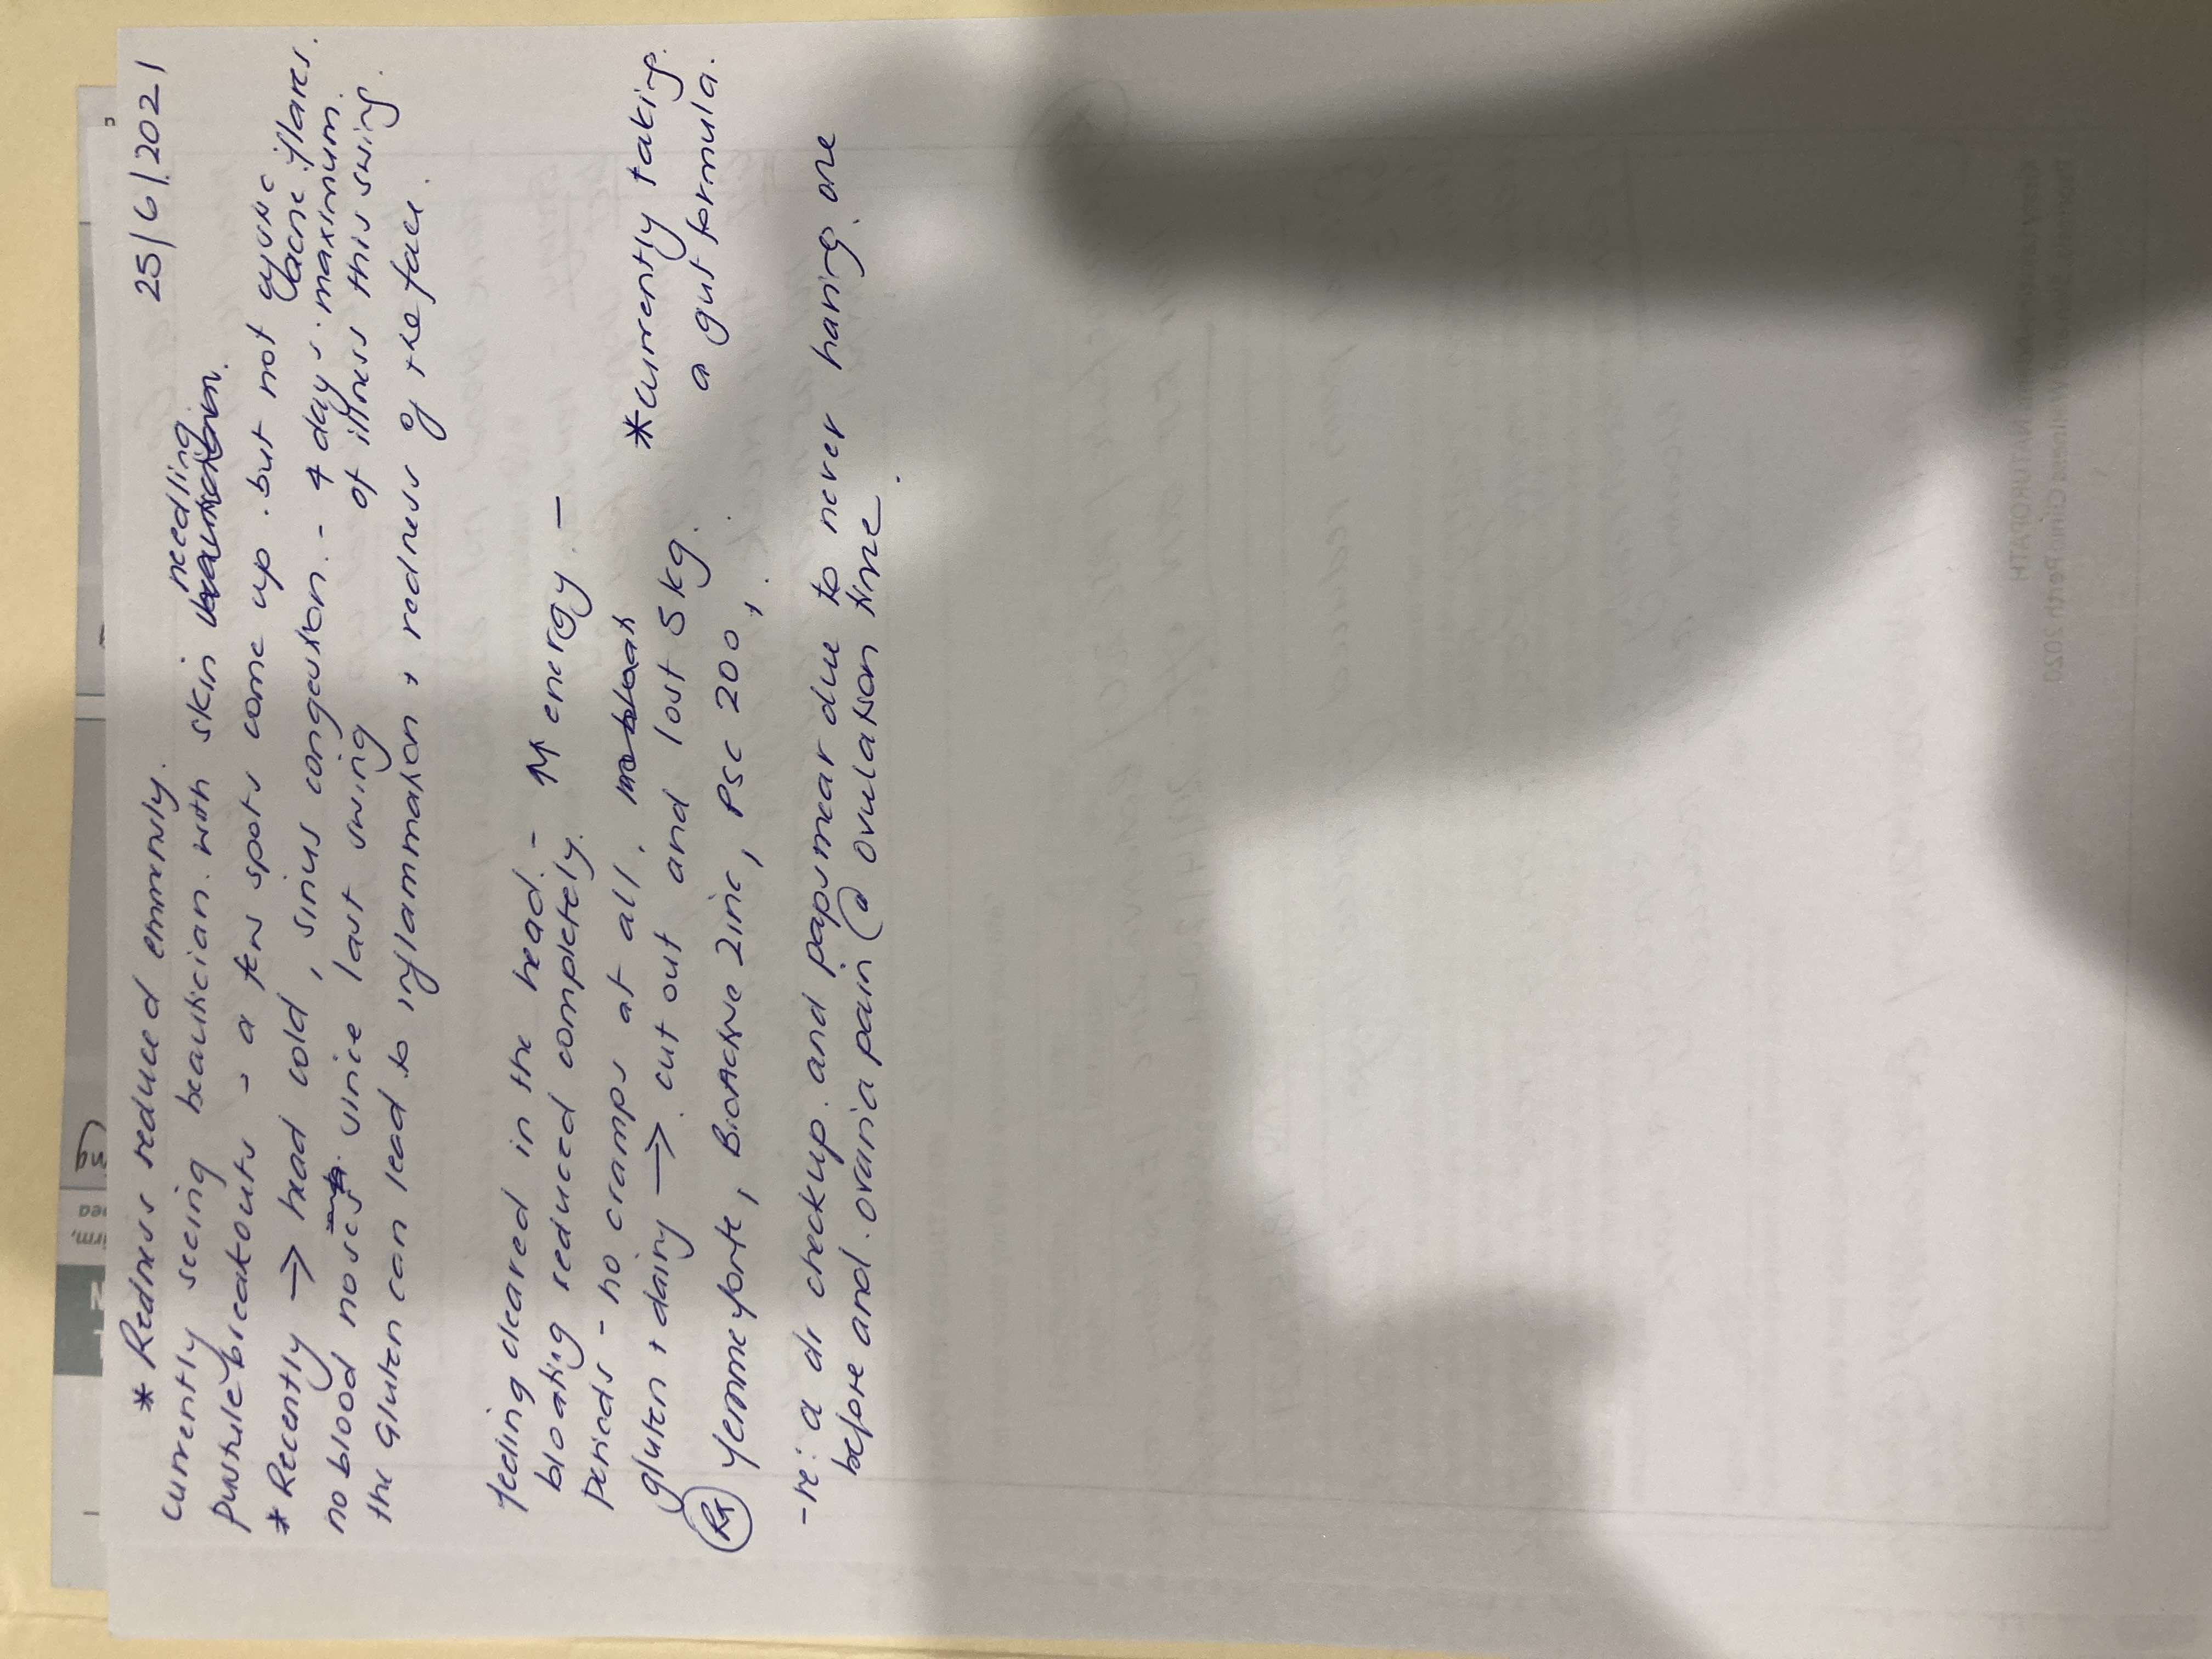 25/6/2021
* Redness reduced emmensly.
currently seeing beautician. with skin needling
pustule breakouts - a few spots come up. but not cystic acne flares.
* Recently → head cold, sinus congestion. - 4 days maximum.
no blood noses since last swing of illness this swing.
the Gluten can lead to inflammation + redness of the face.
feeling cleared in the head. - ↑↑ energy. -
bloating reduced completely.
periods - no cramps at all.
* currently taking
a gut formula.
gluten + dairy → cut out and lost 5kg.
Rx femmeforte, BioActive Zinc, PSC 200,
-re: a dr checkup. and papsmear due to never having one
before and. ovaria pain @ ovulation time.